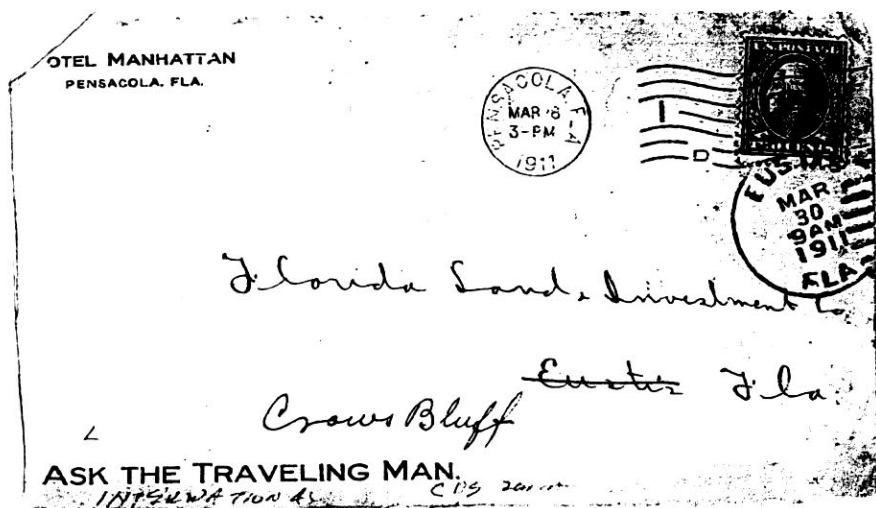 OTEL MANHATTAN
PENSACOLA, FLA.
PENSACOLA, FLA
MAR 8
3-PM
1911
D
EUSTIS
MAR
30
9AM
1911
FLA
Florida Land & Investment Co
Eustis Fla
Crows Bluff
ASK THE TRAVELING MAN.
CDS